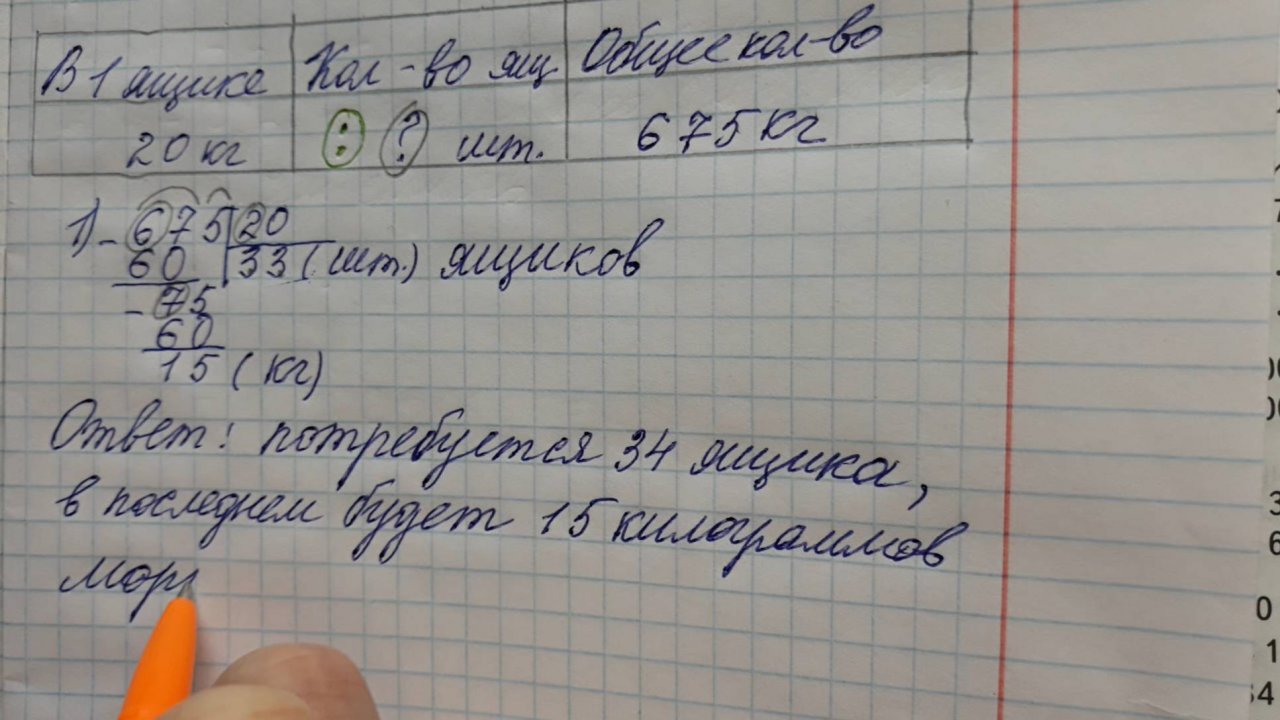 В 1 ящике Кол-во ящ Общее кол-во
20 кг : ? шт. 675 кг
1) - 675 20
60 33 (шт.) ящиков
- 75
60
15 (кг)
Ответ: потребуется 34 ящика,
в последнем будет 15 килограммов
морк
3
6
0
1
64